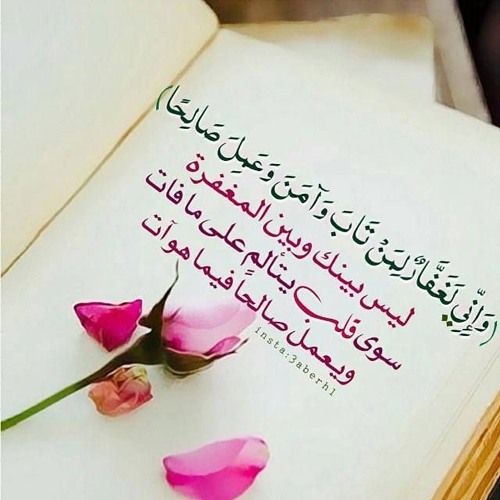 (وَإِنِّي لَغَفَّارٌ لِمَنْ تَابَ وَآمَنَ وَعَمِلَ صَالِحًا)
ليس بينك وبين المغفرة
سوى قلب يتألم على ما فات
ويعمل صالحاً فيما هو آت
insta:3aberh1